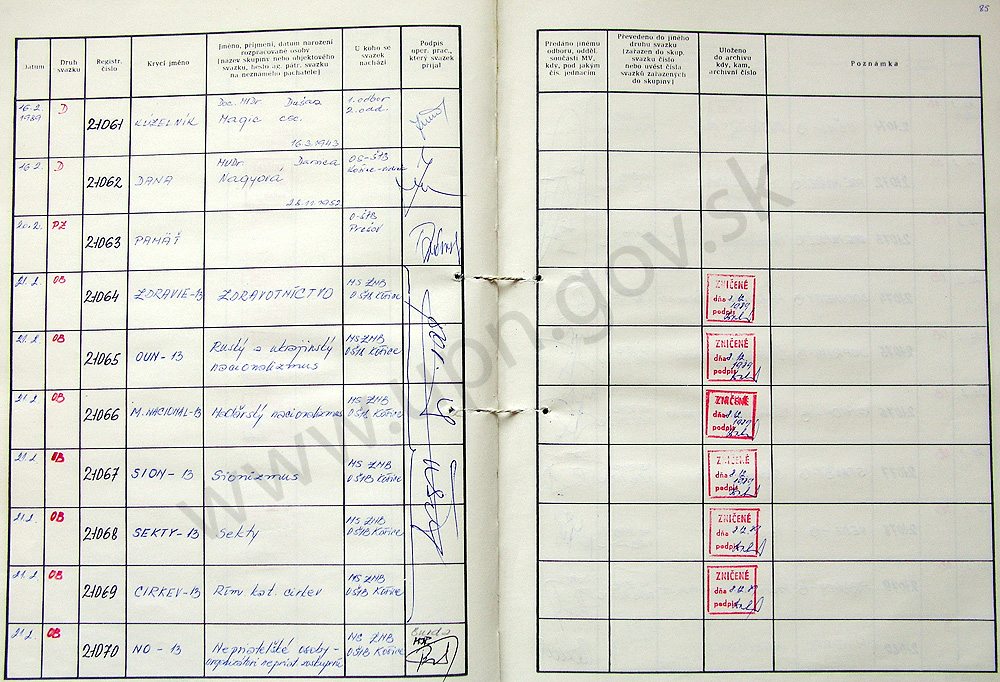 85
Datum
Druh svazku
Registr. číslo
Krycí jméno
Jméno, příjmení, datum narození
rozpracované osoby
(název skupiny nebo objektového
svazku, heslo ag. pátr. svazku
na neznámého pachatele)
U koho se
svazek
nachází
Podpis
oper. prac.,
který svazek
přijal
Předáno jinému
odboru, odděl.
součásti MV,
kdy, pod jakým
čís. jednacím
Převedeno do jiného
druhu svazku
(zařazen do skup.
svazku číslo
nebo uvést čísla
svazků zařazených
do skupiny)
Uloženo
do archivu
kdy, kam,
archivní číslo
Poznámka
16.2. 1989 D 21061 KÚZELNÍK Doc. MDr. Dušan 1. odbor
Magic csc. 2. odd.
16.3.1943
16.2. D 21062 DANA MUDr. Darina OS-ŠtB
Nagyová
26.11.1952
20.2. PZ 21063 PAMÄŤ O-ŠtB
Prešov
21.2. OB 21064 ZDRAVIE-13 ZDRAVOTNÍCTVO MS ZNB
OŠtB Košice
ZNIČENÉ
dňa
1989
podpis
21.2. OB 21065 OUN-13 Ruský a ukrajinský MS ZNB
nacionalizmus OŠtB Košice
ZNIČENÉ
dňa
1989
podpis
21.2. OB 21066 M. NACIONAL-13 Maďarský nacionalizmus MS ZNB
OŠtB Košice
ZNIČENÉ
dňa
1989
podpis
21.2. OB 21067 SION-13 Sionizmus MS ZNB
OŠtB Košice
ZNIČENÉ
dňa
1989
podpis
21.2. OB 21068 SEKTY-13 Sekty MS ZNB
OŠtB Košice
ZNIČENÉ
dňa
podpis
21.2. OB 21069 CIRKEV-13 Rím. kat. cirkev MS ZNB
OŠtB Košice
ZNIČENÉ
dňa
podpis
21.2. OB 21070 NO-13 Nepriateľské osoby - MS ZNB
OŠtB Košice
www.upn.gov.sk